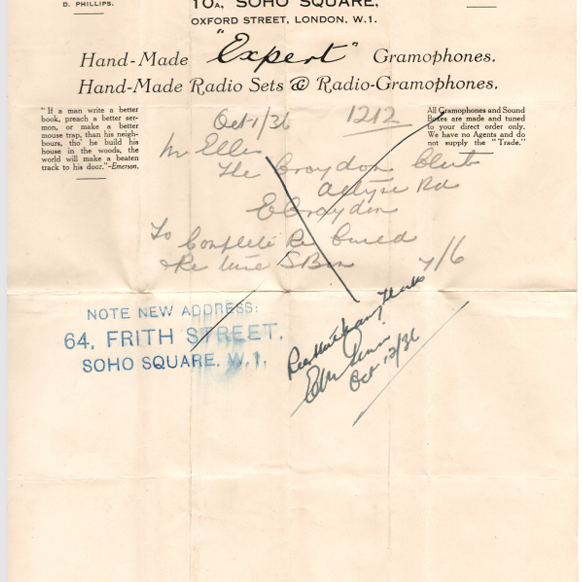 D. PHILLIPS.
10A, SOHO SQUARE,
OXFORD STREET, LONDON, W.1.
Hand-Made "Expert" Gramophones.
Hand-Made Radio Sets & Radio-Gramophones.
"If a man write a better
book, preach a better ser-
mon, or make a better
mouse trap, than his neigh-
bours, tho' he build his
house in the woods, the
world will make a beaten
track to his door."—Emerson.
All Gramophones and Sound
Boxes are made and tuned
to your direct order only.
We have no Agents and do
not supply the "Trade."
Oct 1/36 1212
Mr Ellis
The Croydon Club
Rd
E Croydon
To Complete Re build
& Re tune S Box 7/6
NOTE NEW ADDRESS:
64, FRITH STREET,
SOHO SQUARE, W.1.
Rec with many thanks
Oct 12/36